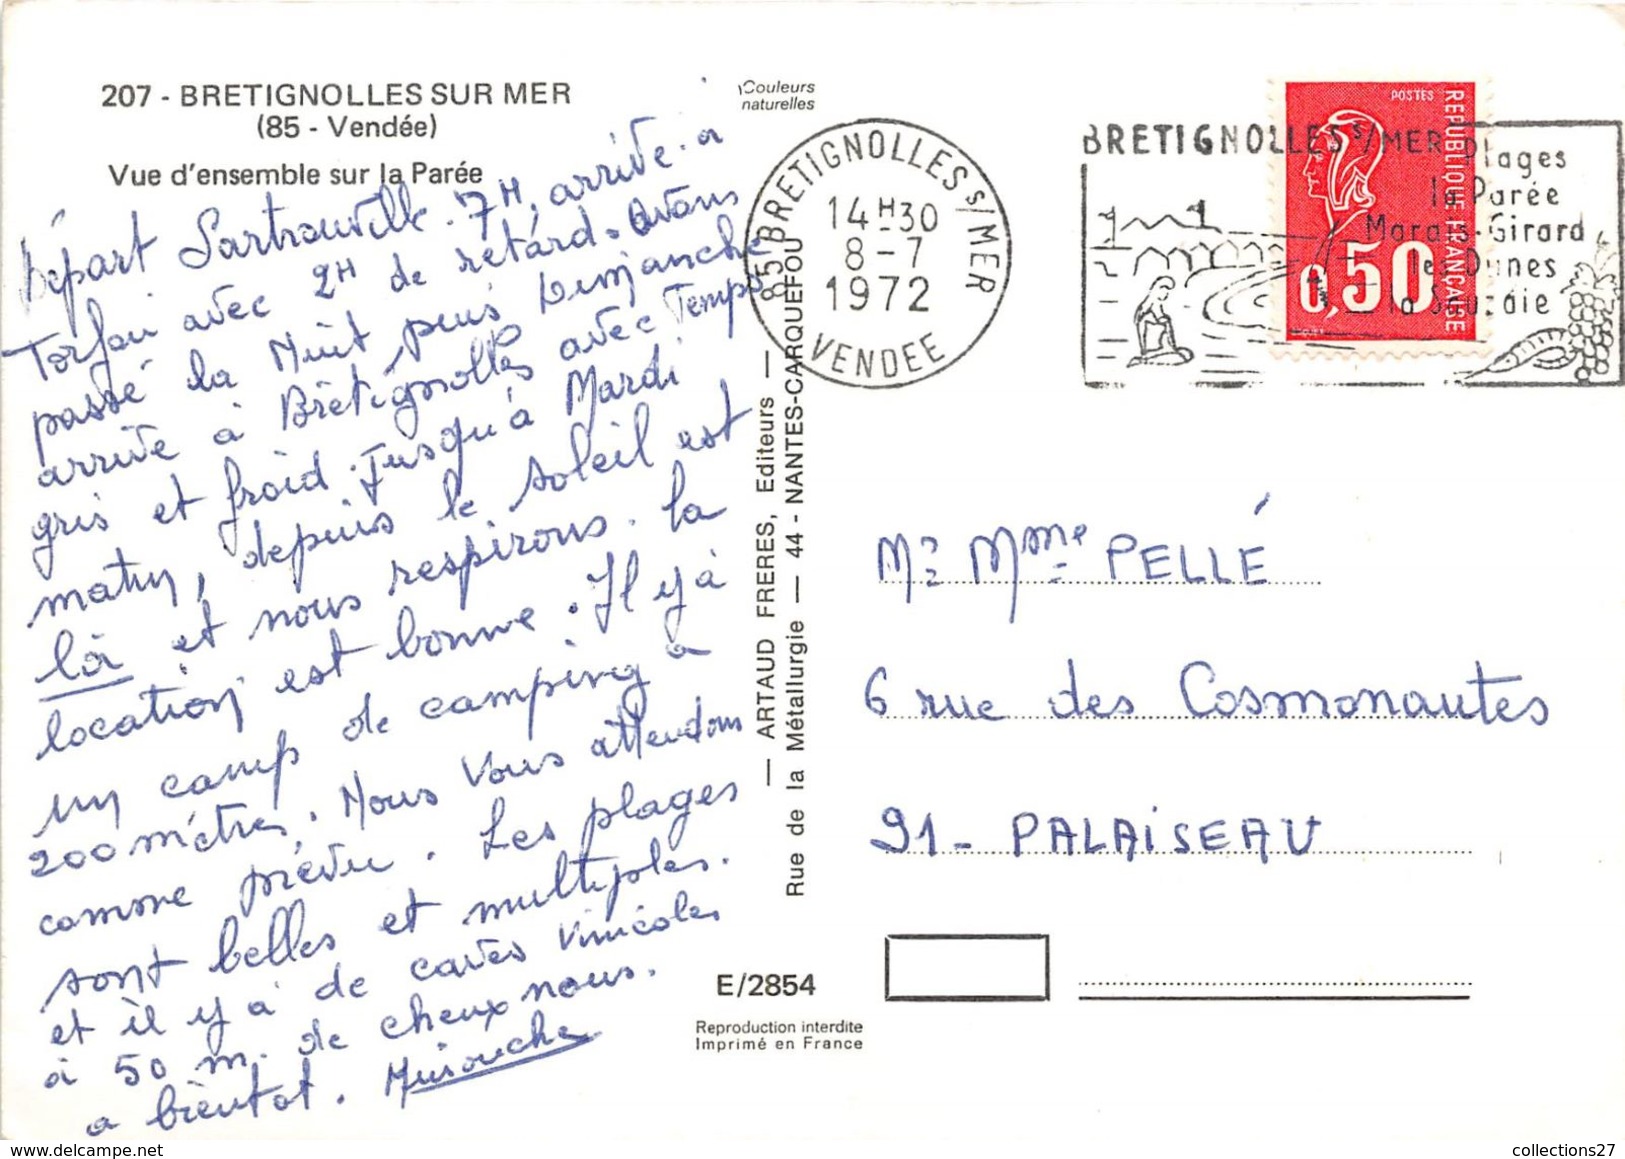 207 - BRETIGNOLLES SUR MER
(85 - Vendée)
Vue d'ensemble sur la Parée
Couleurs
naturelles
Départ Sartrouville 7H, arrivé a
Torfou avec 2H de retard. Avons
passé la Nuit, puis Dimanche
arrivé à Brétignolles avec Temps
gris et froid. Jusqu'à Mardi
matin, depuis le soleil est
là et nous respirons. la
location est bonne. Il y à
un camp de camping à
200 mètres. Nous Vous attendons
comme prévu. Les plages
sont belles et multiples.
et il y à de caves vinicoles
à 50 m. de cheux nous.
a bientot. Minouche
— ARTAUD FRERES, Editeurs —
Rue de la Métallurgie — 44 - NANTES-CARQUEFOU
E/2854
Reproduction interdite
Imprimé en France
85 BRETIGNOLLES S/MER
14H30
8-7
1972
VENDEE
BRETIGNOLLES S/MER
Plages
la Parée
Marais-Girard
les Dunes
la Sauzaie
POSTES
REPUBLIQUE FRANÇAISE
0,50
Mr Mme PELLÉ
6 rue des Cosmonautes
91 - PALAiSEAU
collections27